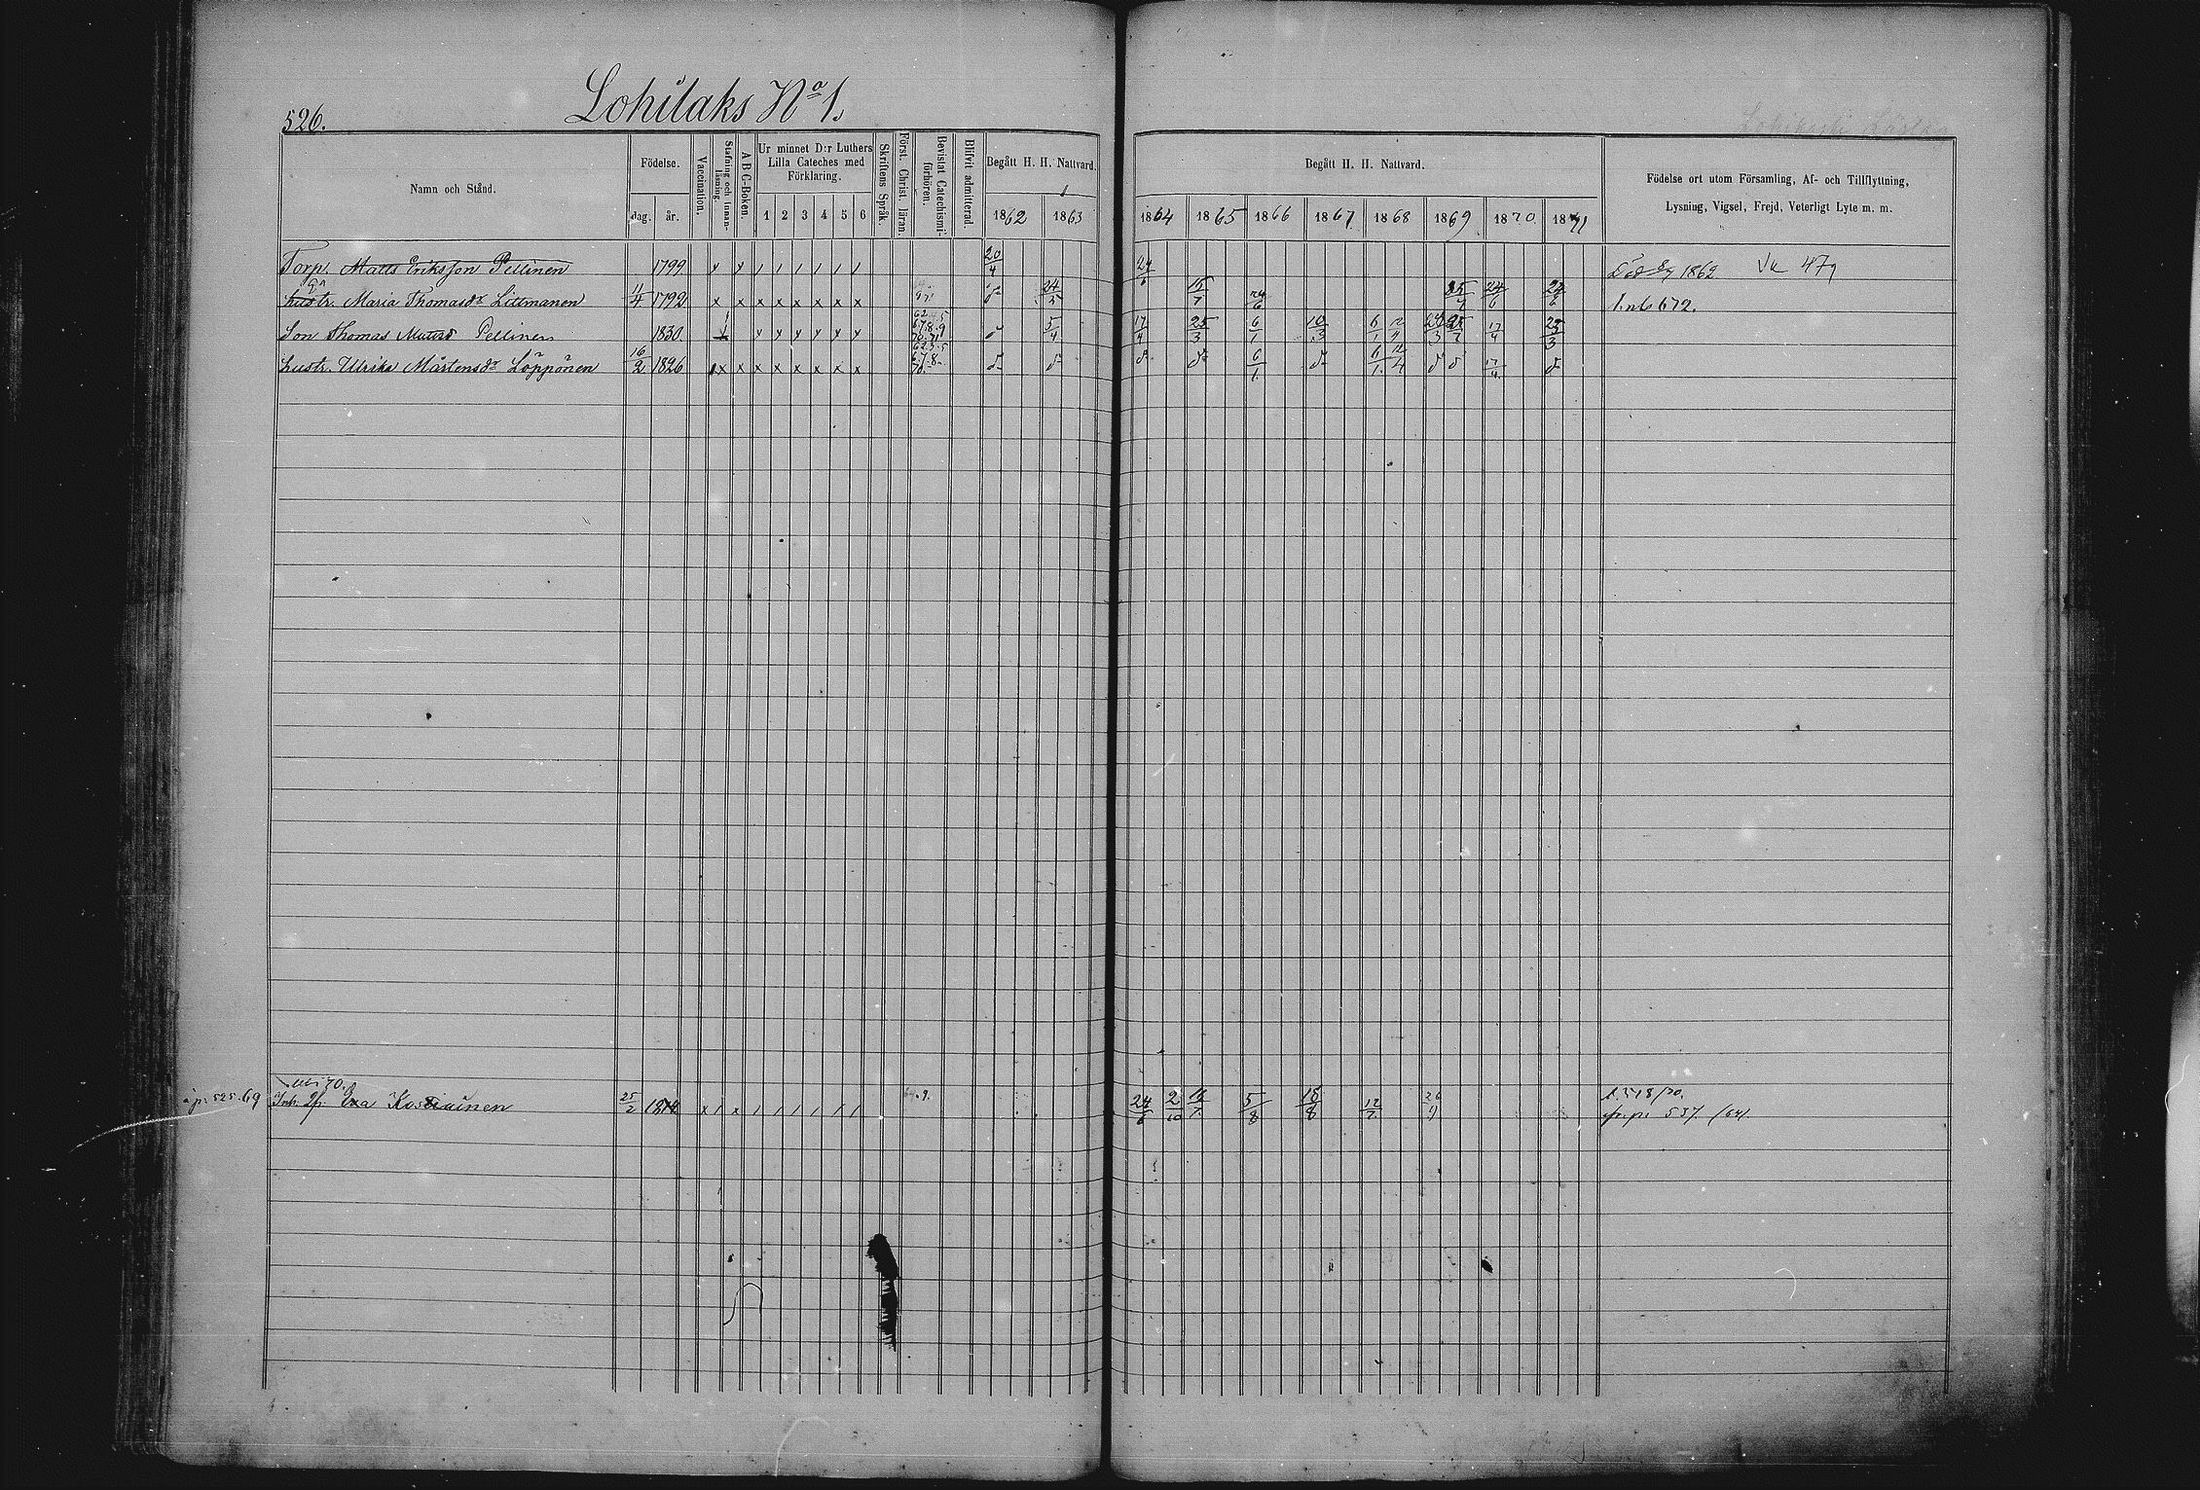 526.
Lohilaks No 1.
Namn och Stånd.
Födelse.
dag. år.
Vaccination.
Stafning och Innanläsning.
A B C-Boken.
Ur minnet D:r Luthers Lilla Cateches med Förklaring.
1 2 3 4 5 6
Skriftens Språk.
Först. Christ. läran.
Bevistat Catechismiförhören.
Blifvit admitterad.
Begått H. H. Nattvard.
1862 1863
Begått H. H. Nattvard.
1864 1865 1866 1867 1868 1869 1870 1871
Födelse ort utom Församling, Af- och Tillflyttning,
Lysning, Vigsel, Frejd, Veterligt Lyte m. m.
Torp. Matts Eriksson Pellinen 1799 20/4 1862 479
hustr. Maria Thomasdr Littmanen 11/4 1792 x x x x x x x x 24/5 15/7 24/6 672.
Son Thomas Pellinen 1830 5/4 17/4 25/3 6/1 10/3 17/4 25/3
hustr. Ulrika Mårtensdr Löppönen 16/2 1826 x x x x x x x x 6/1 17/4
Inh. Eva Kostiainen 25/2 24/6 2/10 5/8 18/8 12/7 537.
525.69